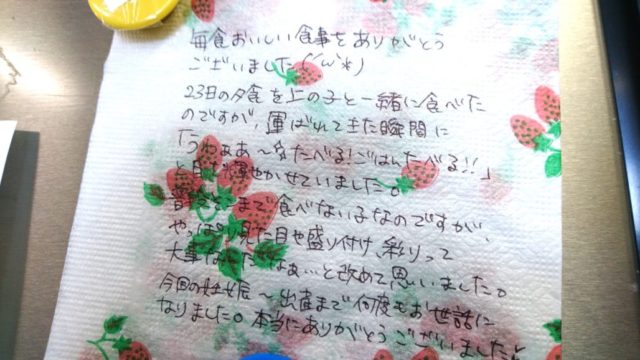 毎食おいしい食事をありがとう
ございました(´ω`*)
23日の夕食を上の子と一緒に食べた
のですが、運ばれてきた瞬間に
「うわぁあ～たべる!ごはんたべる!!」
と目を輝やかせていました。
普段そこまで食べない子なのですが、
やっぱり見た目や盛り付け、彩りって
大事なんだなぁ…と改めて思いました。
今回の妊娠～出産まで何度もお世話に
なりました。本当にありがとうございました